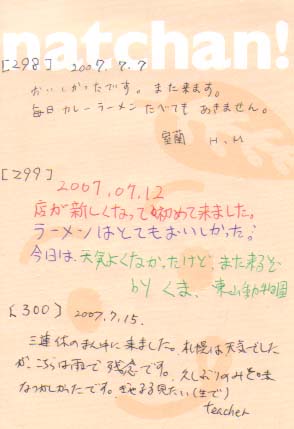 natchan!
[298] 2007.7.7
おいしかったです。また来ます。
毎日カレーラーメンたべてもあきません。
室蘭 H.M
[299]
2007.07.12
店が新しくなって初めて来ました。
ラーメンはとてもおいしかった。
今日は、天気よくなかったけど、また来るぞ
by くま、東山動物園
[300] 2007.7.15.
三連休のまん中に来ました。札幌は天気でした
が、こちらは雨で残念です。
なつかしかったです。
teacher